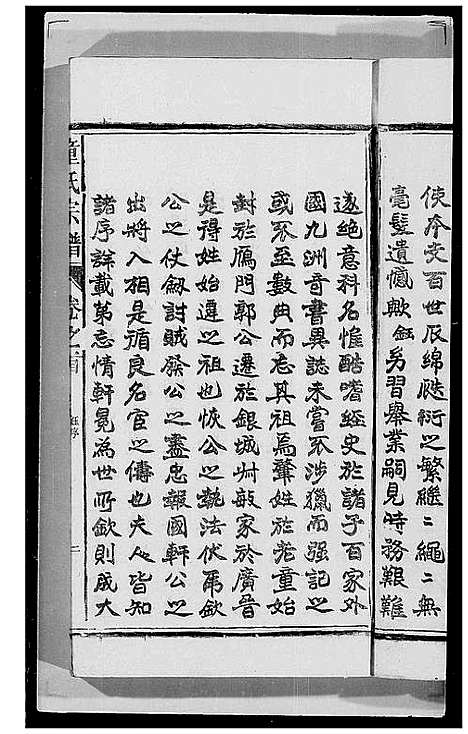 使本支百世瓜綿瓞衍之繁繼〻繩〻無
毫髮遺憾歟鈺幼習舉業嗣見時務艱難
遂絕意科名惟酷嗜經史於諸子百家外
國九洲奇書異誌未嘗不涉獵而强記之
或不至數典而忘其祖焉龔姓於老童始
封於鴈門郭公遷於銀城州敲家於廣音
是得姓始遷之祖也恢公之執法伏帝欽
公之仗劔討賊發公之盡忠報國軒公之
出將入相是循良名宦之儔也夫人皆知
諸序詳載第忘情軒冕為世所欽則成大
童氏宗譜
卷之首
鈺序
二